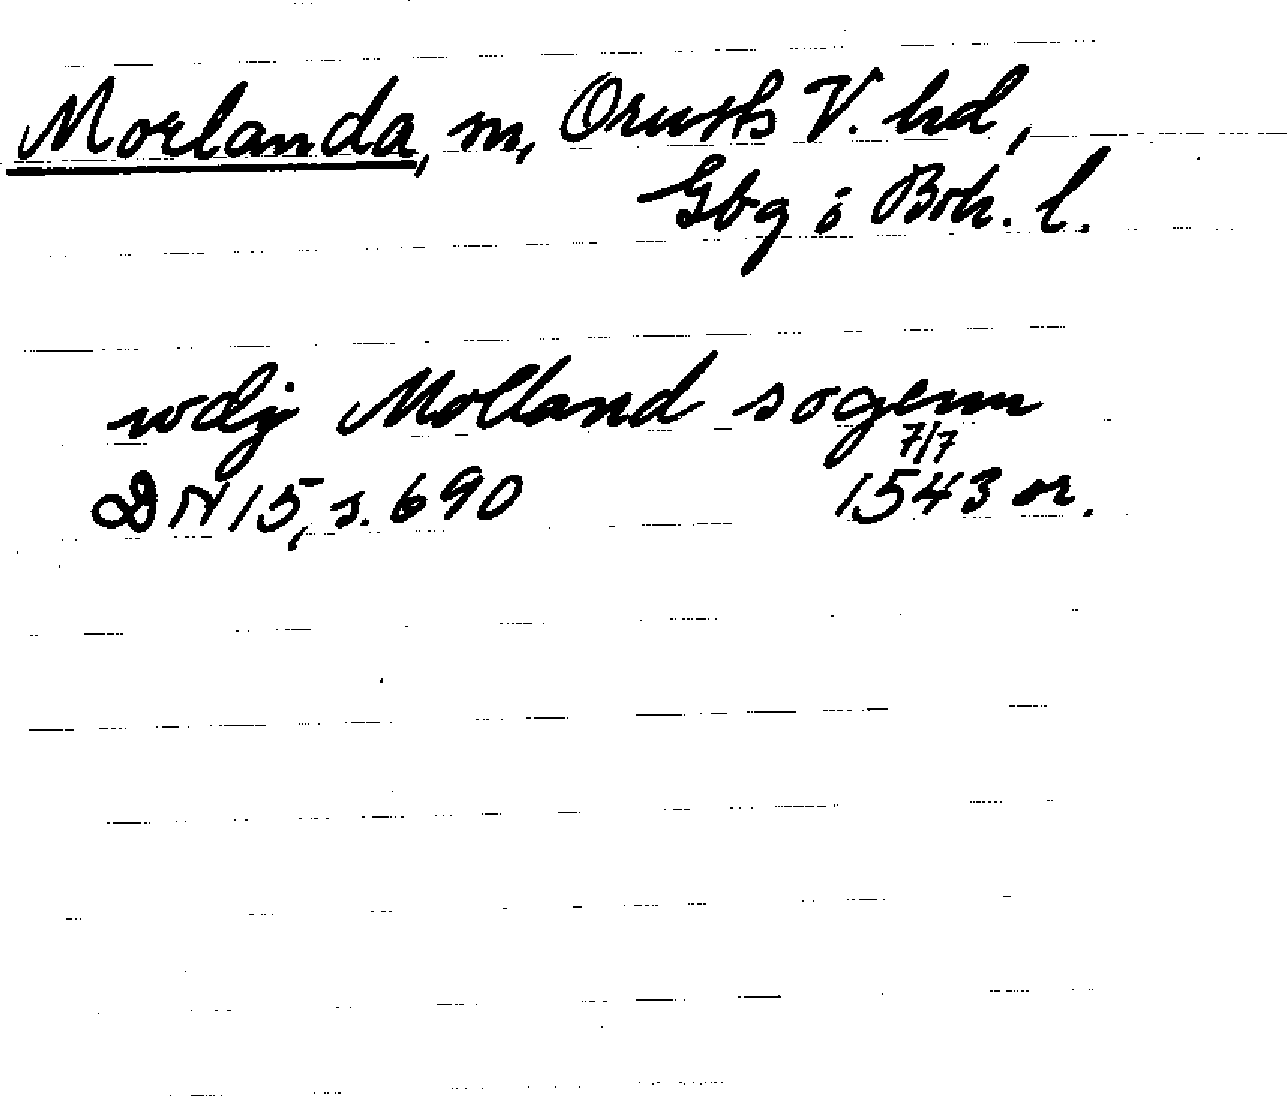 Morlanda, sn, Orusts V. hd,
Gbg o Boh. l.
wdij Molland sogenn
7/7
DN 15, s. 690 1543 or.